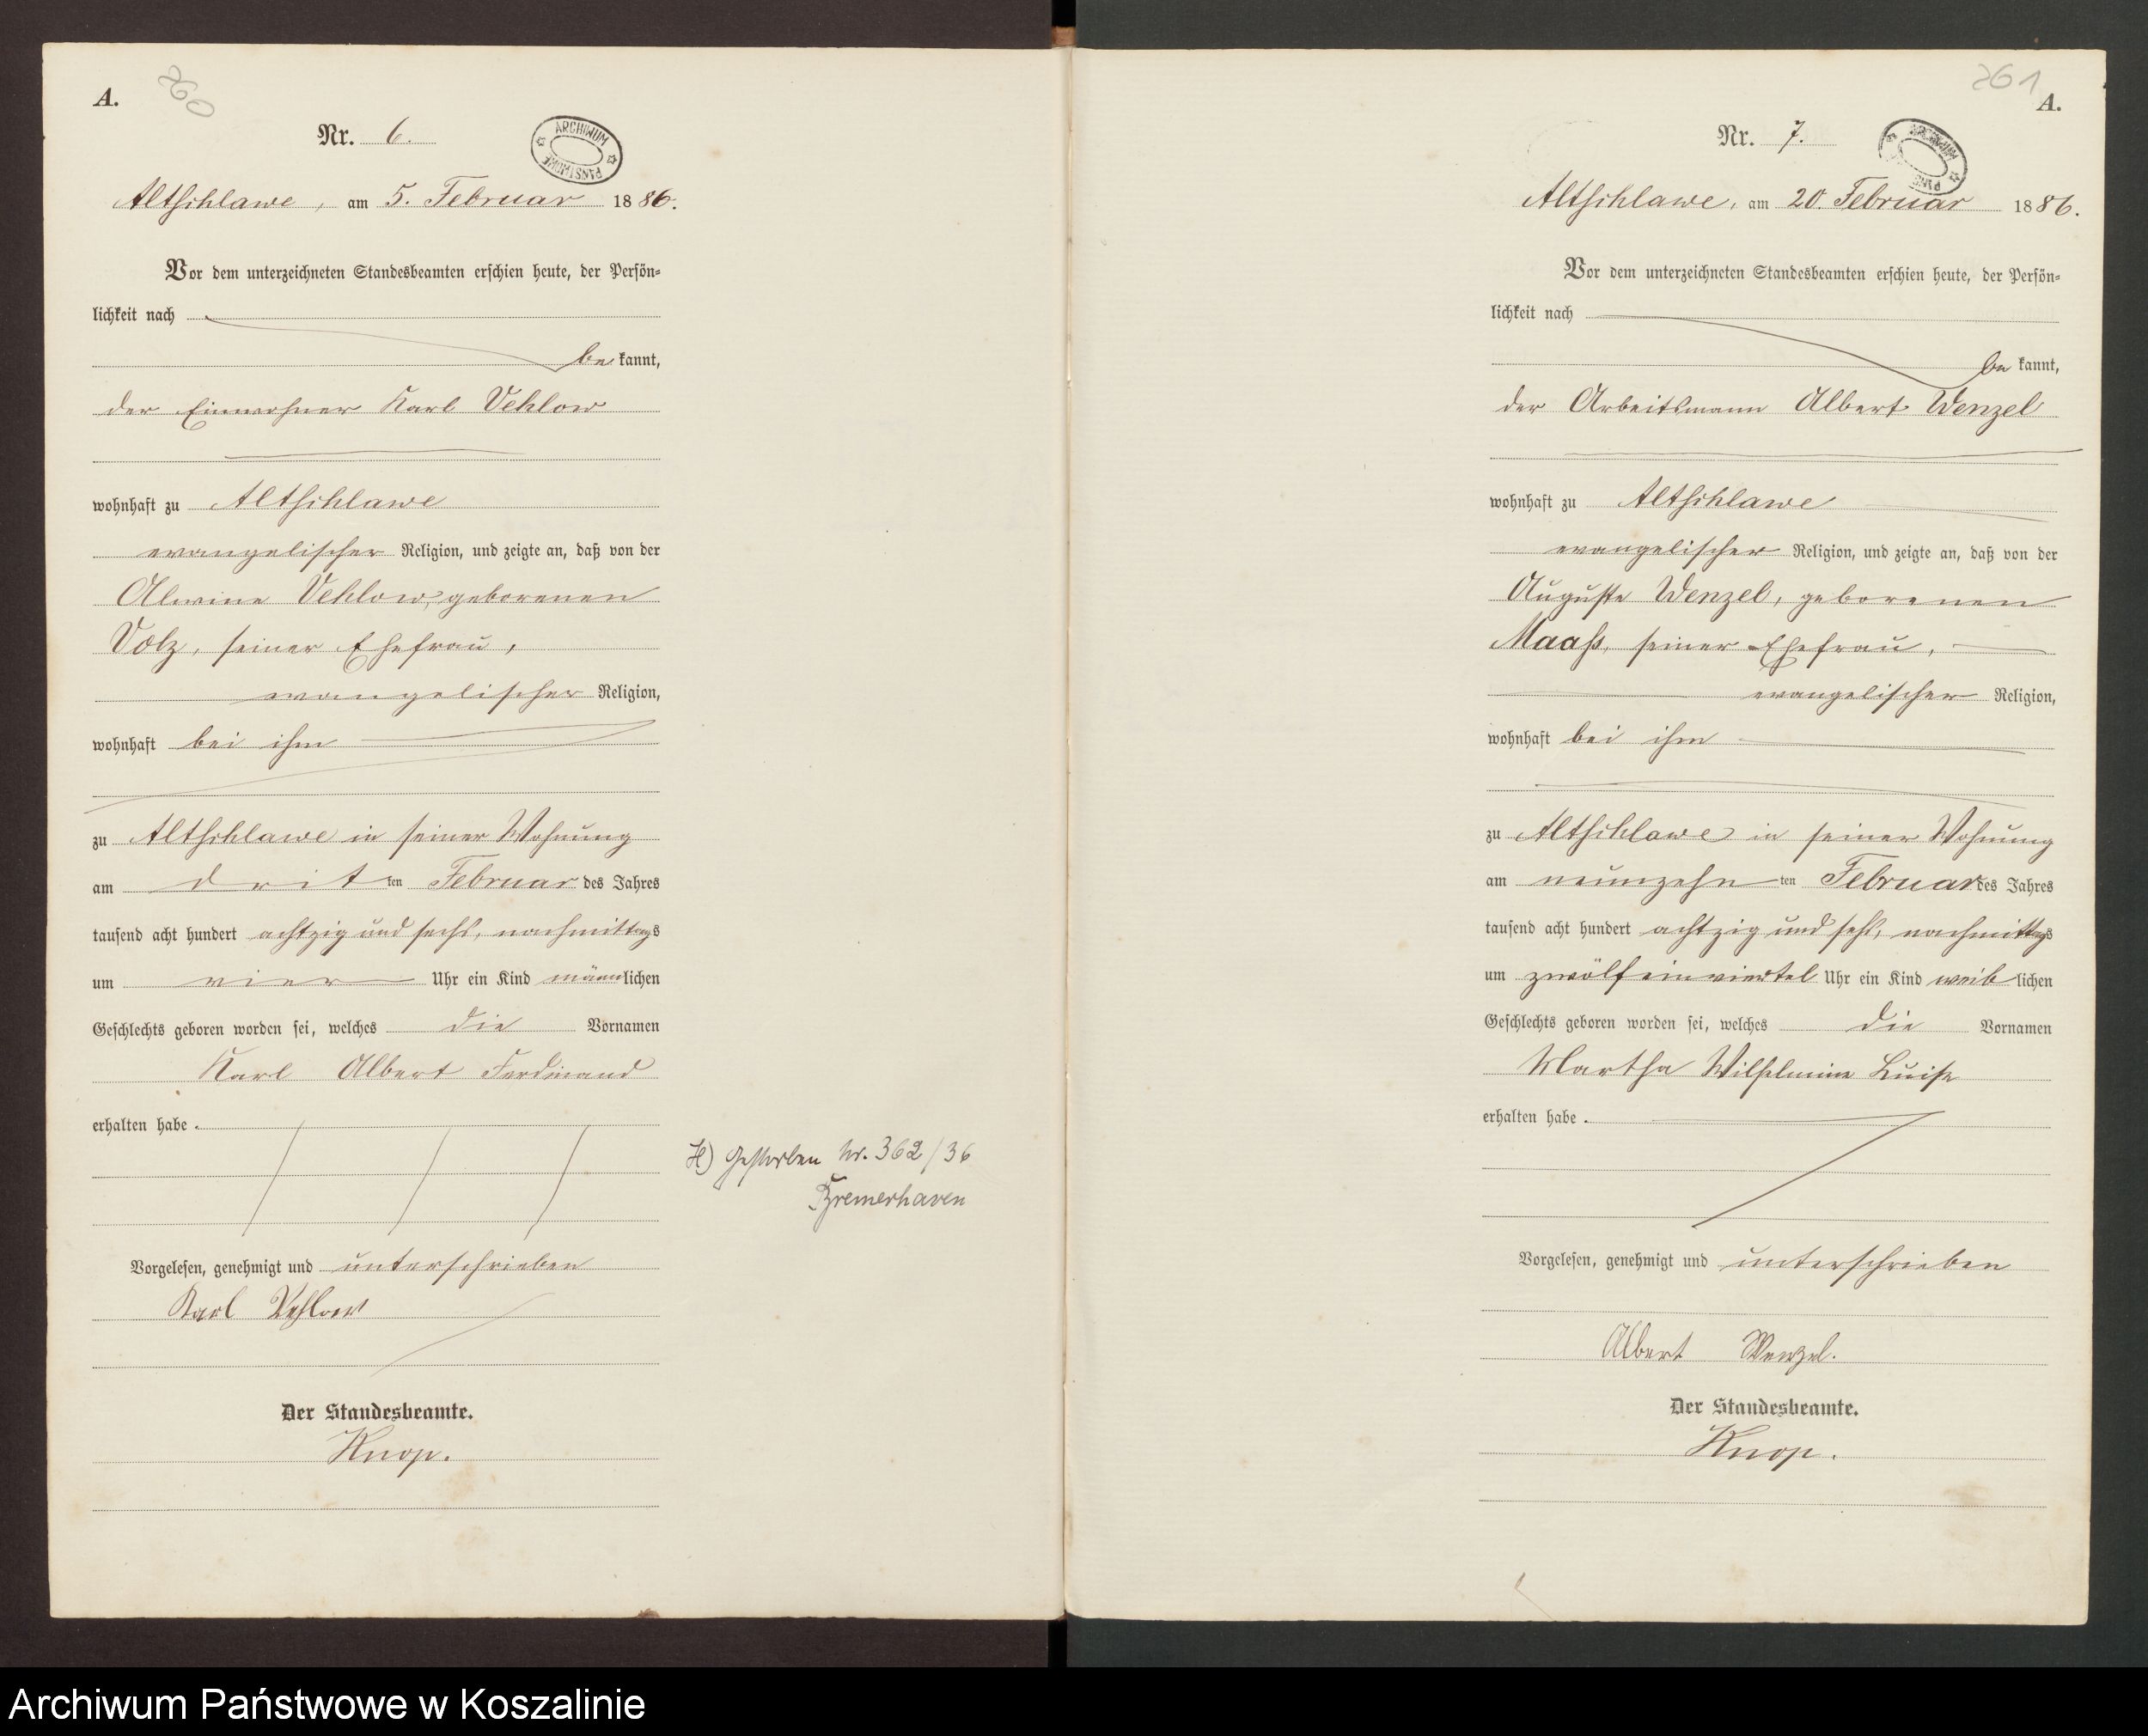 A.
260
Nr. 6.
ARCHIWUM PAŃSTWOWE
Altschlawe, am 5. Februar 1886.
Vor dem unterzeichneten Standesbeamten erschien heute, der Persön-
lichkeit nach
bekannt,
der Einwohner Karl Vehlow
wohnhaft zu Altschlawe
evangelischer Religion, und zeigte an, daß von der
Alwine Vehlow, geborenen
Volz, seiner Ehefrau,
evangelischer Religion,
wohnhaft bei ihm
zu Altschlawe in seiner Wohnung
am dritten Februar des Jahres
tausend acht hundert achtzig und sechs, nachmittags
um vier Uhr ein Kind männlichen
Geschlechts geboren worden sei, welches die Vornamen
Karl Albert Ferdinand
erhalten habe.
H) Gestorben Nr. 362/36
Bremerhaven
Vorgelesen, genehmigt und unterschrieben
Karl Vehlow
Der Standesbeamte.
Knop.
261
A.
Nr. 7.
ARCHIWUM
Altschlawe, am 20. Februar 1886.
Vor dem unterzeichneten Standesbeamten erschien heute, der Persön-
lichkeit nach
bekannt,
der Arbeitsmann Albert Wenzel
wohnhaft zu Altschlawe
evangelischer Religion, und zeigte an, daß von der
Auguste Wenzel, geborenen
Maaß, seiner Ehefrau,
evangelischer Religion,
wohnhaft bei ihm
zu Altschlawe in seiner Wohnung
am neunzehnten Februar des Jahres
tausend acht hundert achtzig und sechs, nachmittags
um zwölf ein viertel Uhr ein Kind weiblichen
Geschlechts geboren worden sei, welches die Vornamen
Martha Wilhelmine Luise
erhalten habe.
Vorgelesen, genehmigt und unterschrieben
Albert Wenzel.
Der Standesbeamte.
Knop.
Archiwum Państwowe w Koszalinie